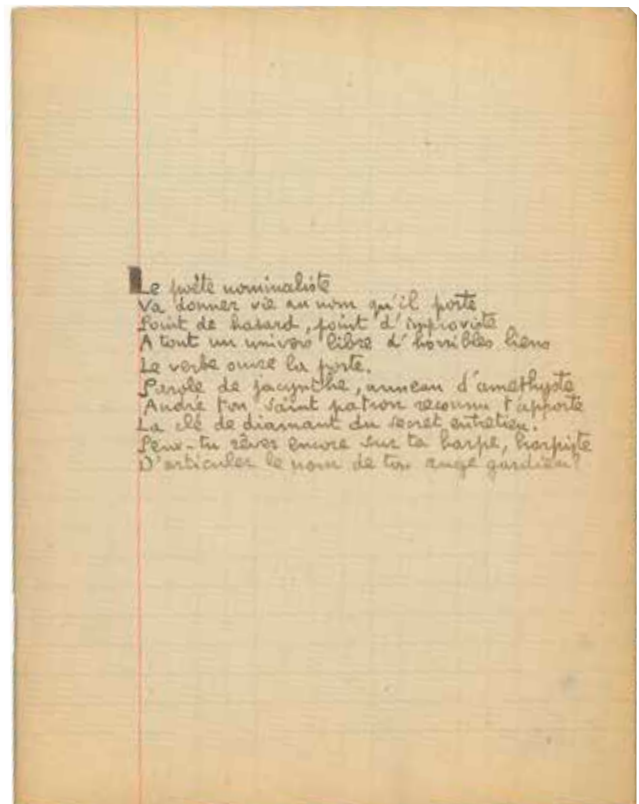 Le poète nominaliste
Va donner vie au nom qu'il porte
Point de hasard, point d'improviste
A tout un univers libre d'horribles liens
Le verbe ouvre la porte.
Parole de jacynthe, anneau d'améthyste
André ton saint patron reconnu t'apporte
La clé de diamant du secret entretien.
Peux-tu rêver encore sur ta harpe, harpiste
D'articuler le nom de ton ange gardien?